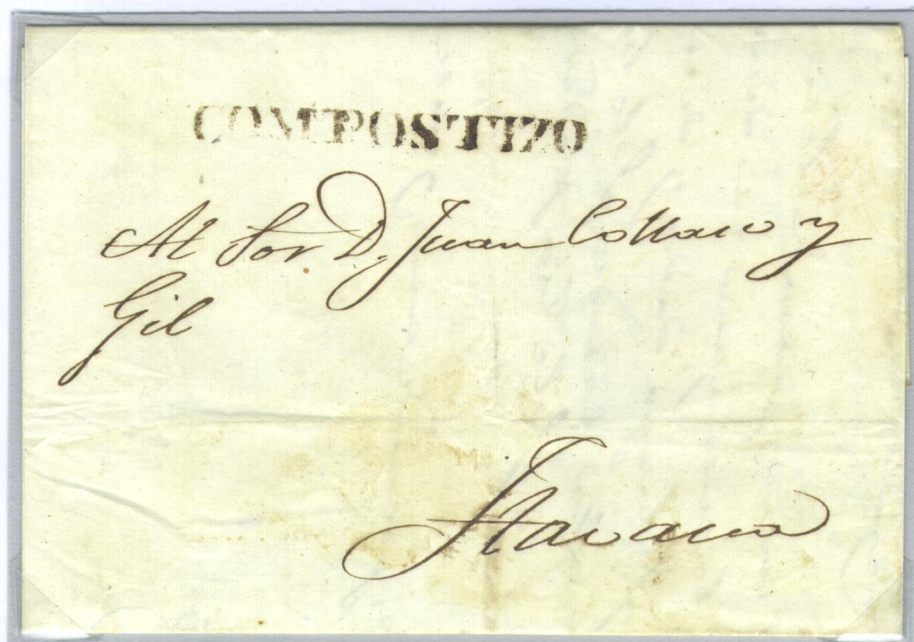 COMPOSTIZO
Al Sor D. Juan Collazo y
Gil
Havana